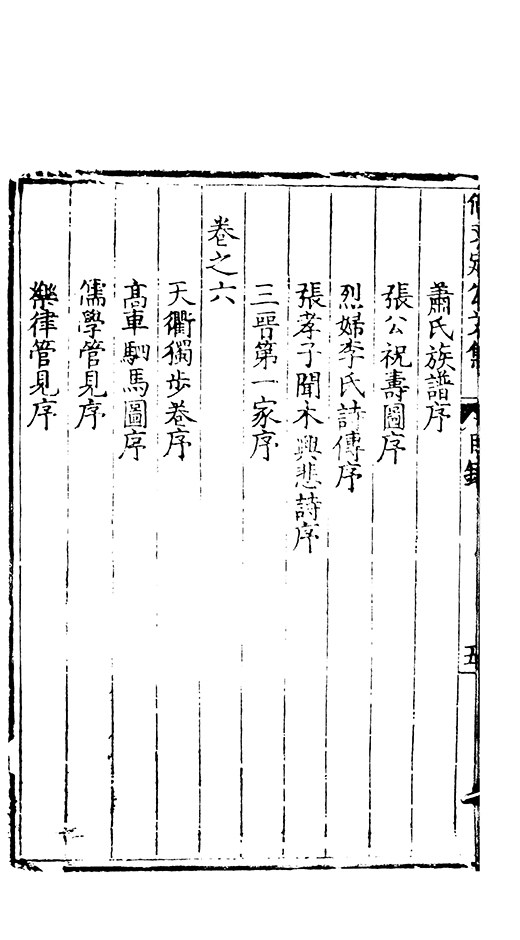 蕭氏族譜序
張公祝壽圖序
烈婦李氏詩傳序
張孝子聞木興悲詩序
三晉第一家序
卷之六
天衢獨步卷序
高車駟馬圖序
儒學管見序
樂律管見序